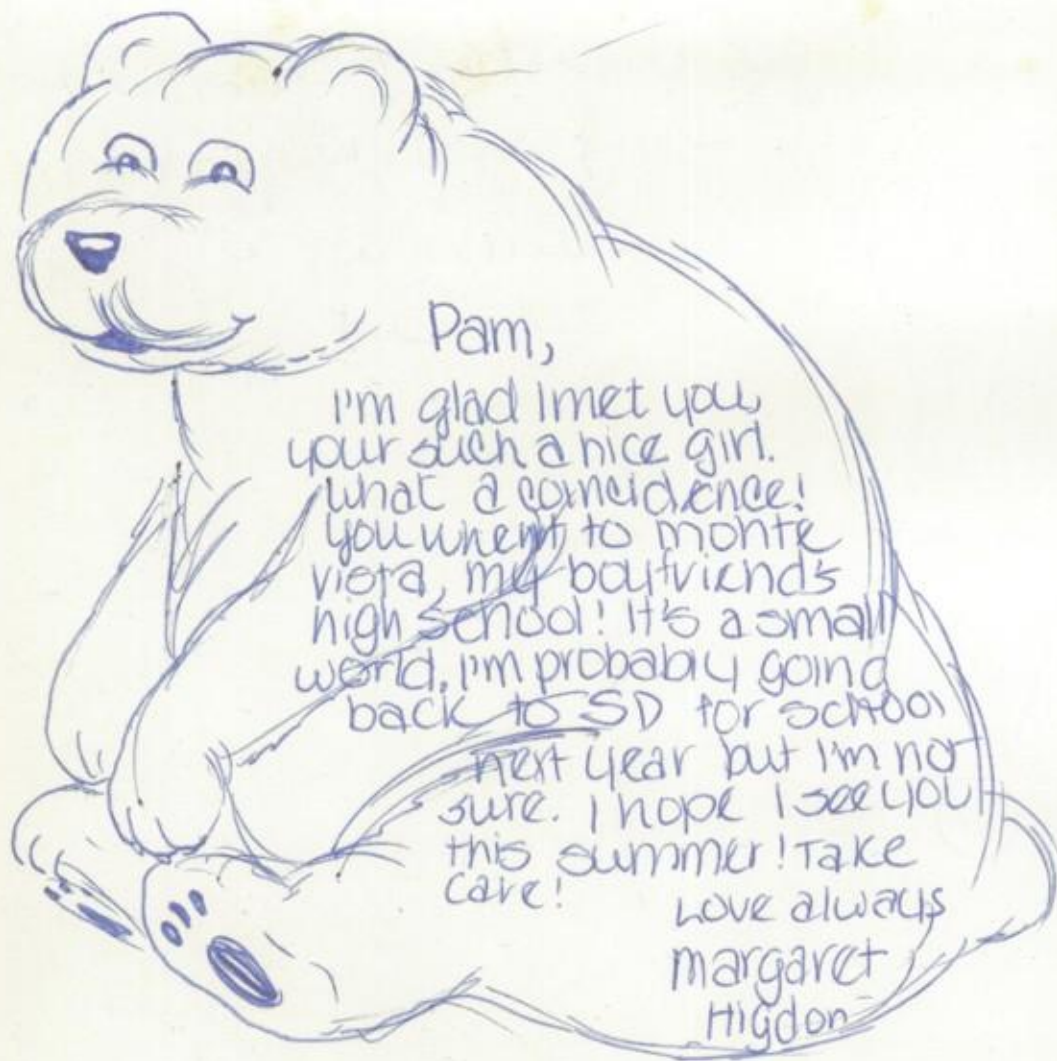 Pam,
I'm glad I met you,
your such a nice girl.
what a coincidence!
you whent to monte
vista, my boyfriend's
high school! It's a small
world. I'm probably going
back to SD for school
next year but I'm not
sure. I hope I see you
this summer! Take
care!
Love always
margaret
Higdon